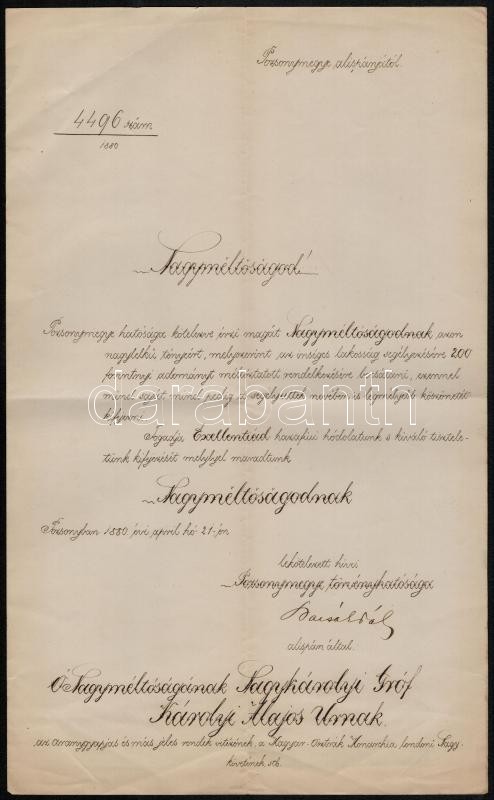 Pozsonymegye alispánjától.
4496 szám
1880
Nagyméltóságod!
Pozsonymegye hatósága kötelezve érzi magát Nagyméltóságodnak, azon
nagylelkű tényeért, melyszerint az insíges lakosság segélyezésére 200
forintnyi adományt méltóztatott rendelkezésére bocsátani, ezennel
mind saját, mind pedig a segélyzettek nevében is legmélyebb köszönetét
kifejezni.
Fogadja Exellentiád hazafiúi hódolatunk s kiváló tisztele-
tünk kifejezését melylyel maradtunk
Nagyméltóságodnak
Pozsonyban 1880. évi april hó 21-én
lekötelezett hívei
Pozsonymegye törvényhatósága
alispán által.
Ő Nagyméltóságának Nagykárolyi Gróf
Károlyi Alajos Urnak.
az aranygyapjas és más jeles rendek vitézének, a Magyar-Osztrák Monarchia londoni Nagy-
követének stb.
darabanth